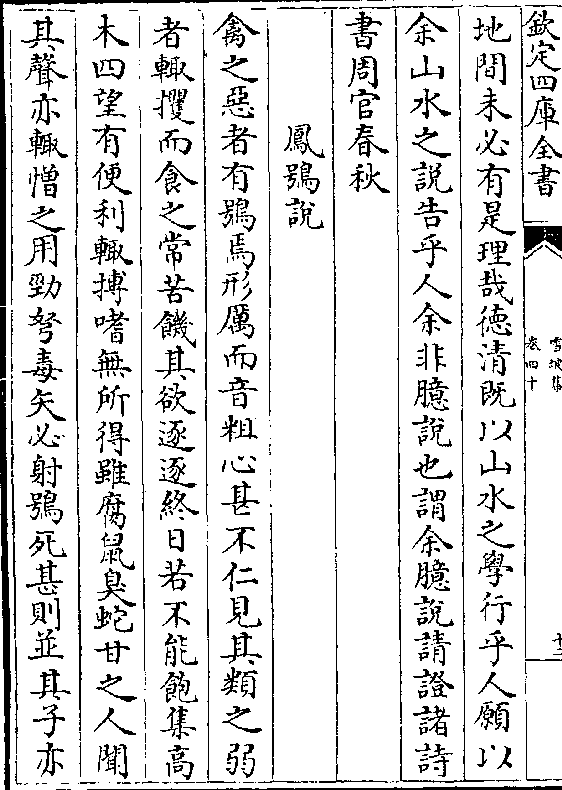 欽定四庫全書
雪坡集
卷四十
十二
地間未必有是理哉徳清既以山水之學行乎人願以
余山水之說告乎人余非臆說也謂余臆說請證諸詩
書周官春秋
鳳鴞說
禽之惡者有鴞焉形厲而音粗心甚不仁見其類之弱
者輙攫而食之常苦饑其欲逐逐終日若不能飽集高
木四望有便利輙搏嗜無所得雖腐鼠臭蛇甘之人聞
其聲亦輙憎之用勁弩毒矢必射鴞死甚則並其子亦